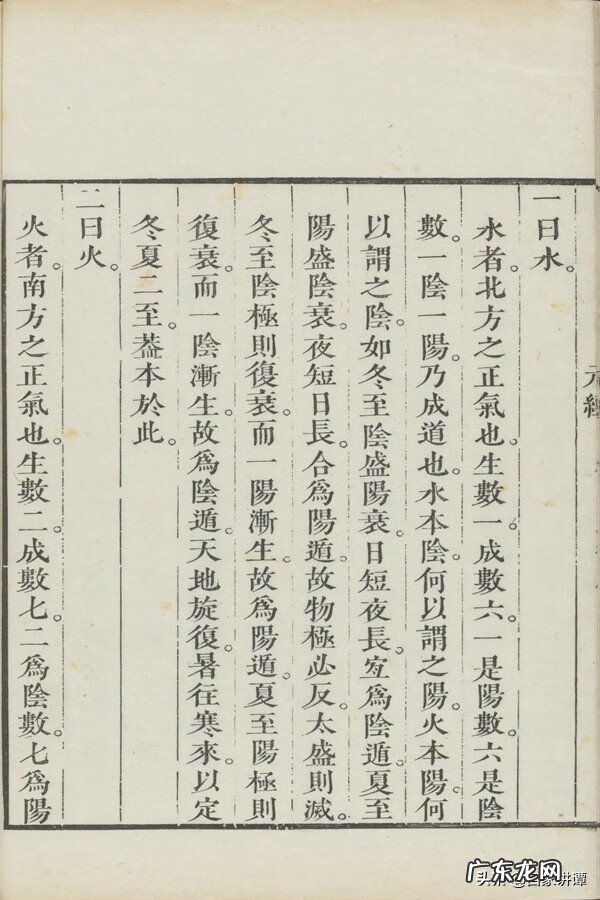 一曰水。
水者。北方之正氣也。生數一。成數六。一是陽數。六是陰
數。一陰一陽。乃成道也。水本陰。何以謂之陽。火本陽。何
以謂之陰。如冬至陰盛陽衰。日短夜長。宐爲陰遁。夏至
陽盛陰衰。夜短日長。合爲陽遁。故物極必反。太盛則滅。
冬至陰極則復衰。而一陽漸生。故爲陽遁。夏至陽極則
復衰。而一陰漸生。故爲陰遁。天地旋復。暑往寒來。以定
冬夏二至。葢本於此。
二曰火。
火者。南方之正氣也。生數二。成數七。二爲陰數。七爲陽
广东龙网